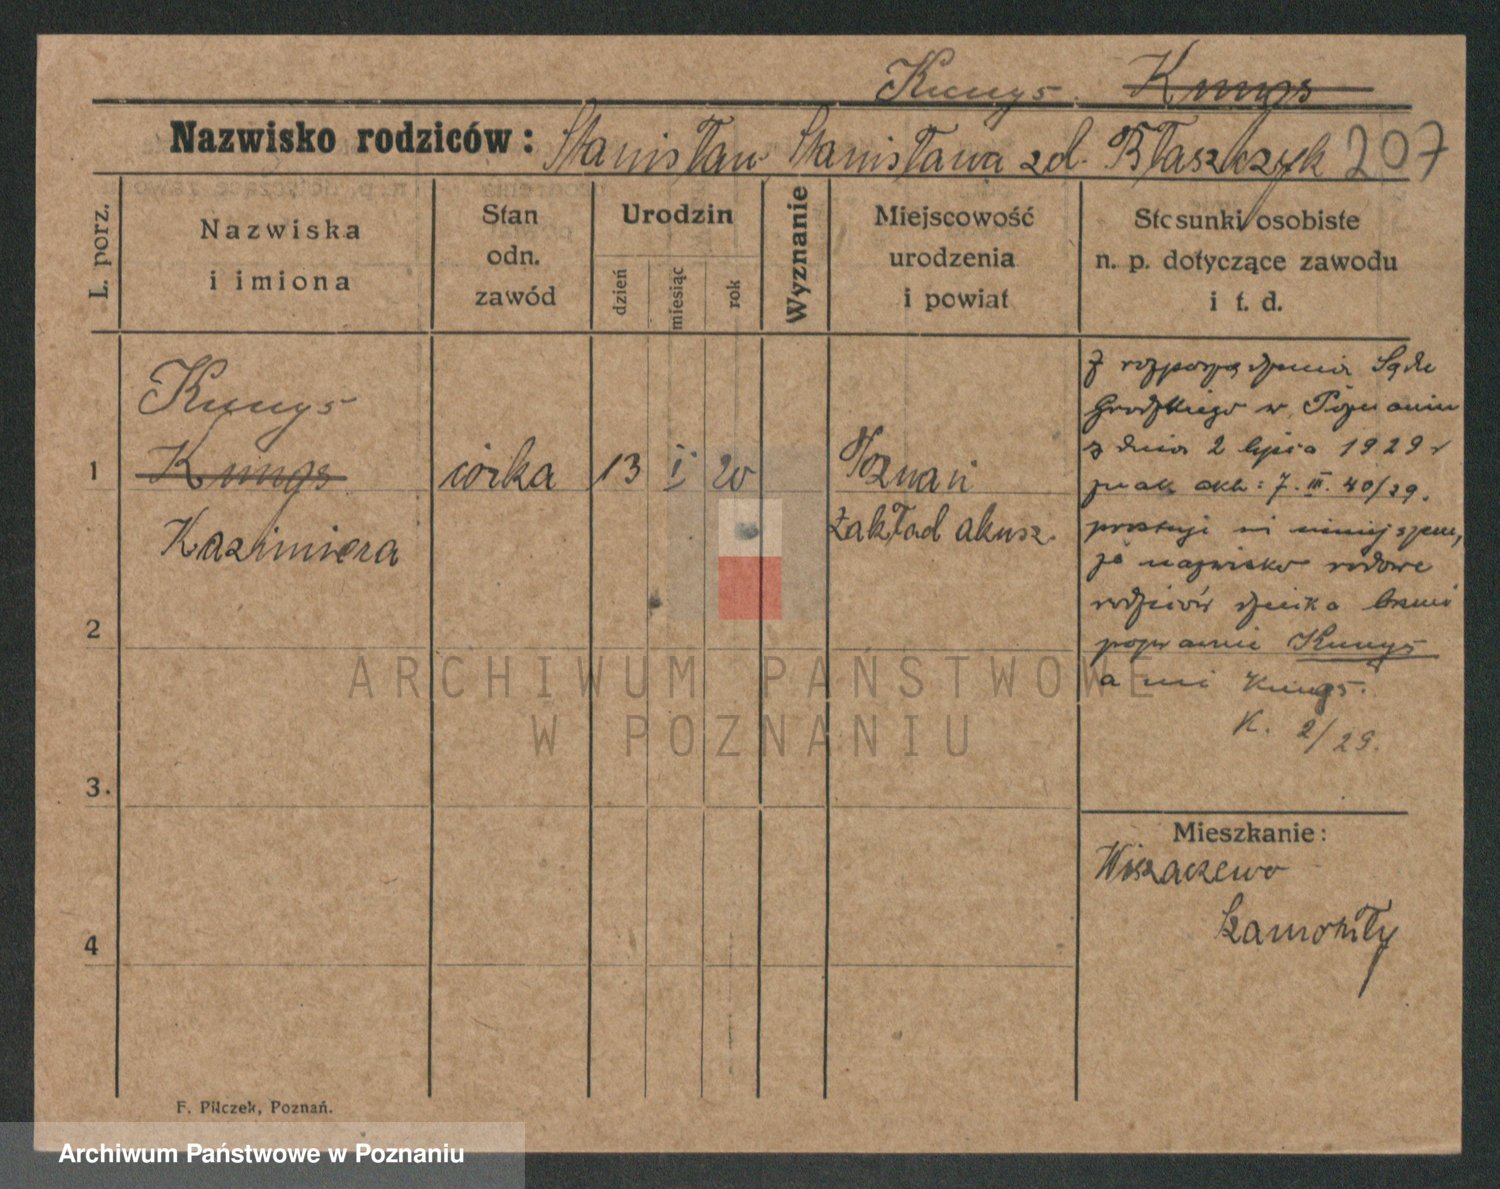 Kunys Kungs
Nazwisko rodziców: Stanisław Stanisława zd. Błaszczyk 207
L. porz.
Nazwiska
i imiona
Stan
odn.
zawód
Urodzin
dzień
miesiąc
rok
Wyznanie
Miejscowość
urodzenia
i powiat
Stosunki osobiste
n. p. dotyczące zawodu
i t. d.
Kunys
1 Kungs córka 13 I 20 Poznań
Kazimiera Zakład akusz.
2
3.
4
Z rozporządzenia Sądu
Grodzkiego w Poznaniu
z dnia 2 lipca 1929 r
znak akt: 7. III. 40/29.
prostuje się niniejszem,
że nazwisko rodowe
rodziców dziecka brzmi
poprawnie Kunys
a nie Kungs.
K. 2/29.
Mieszkanie:
Szamotuły
F. Pilczek, Poznań.
ARCHIWUM PAŃSTWOWE
W POZNANIU
Archiwum Państwowe w Poznaniu